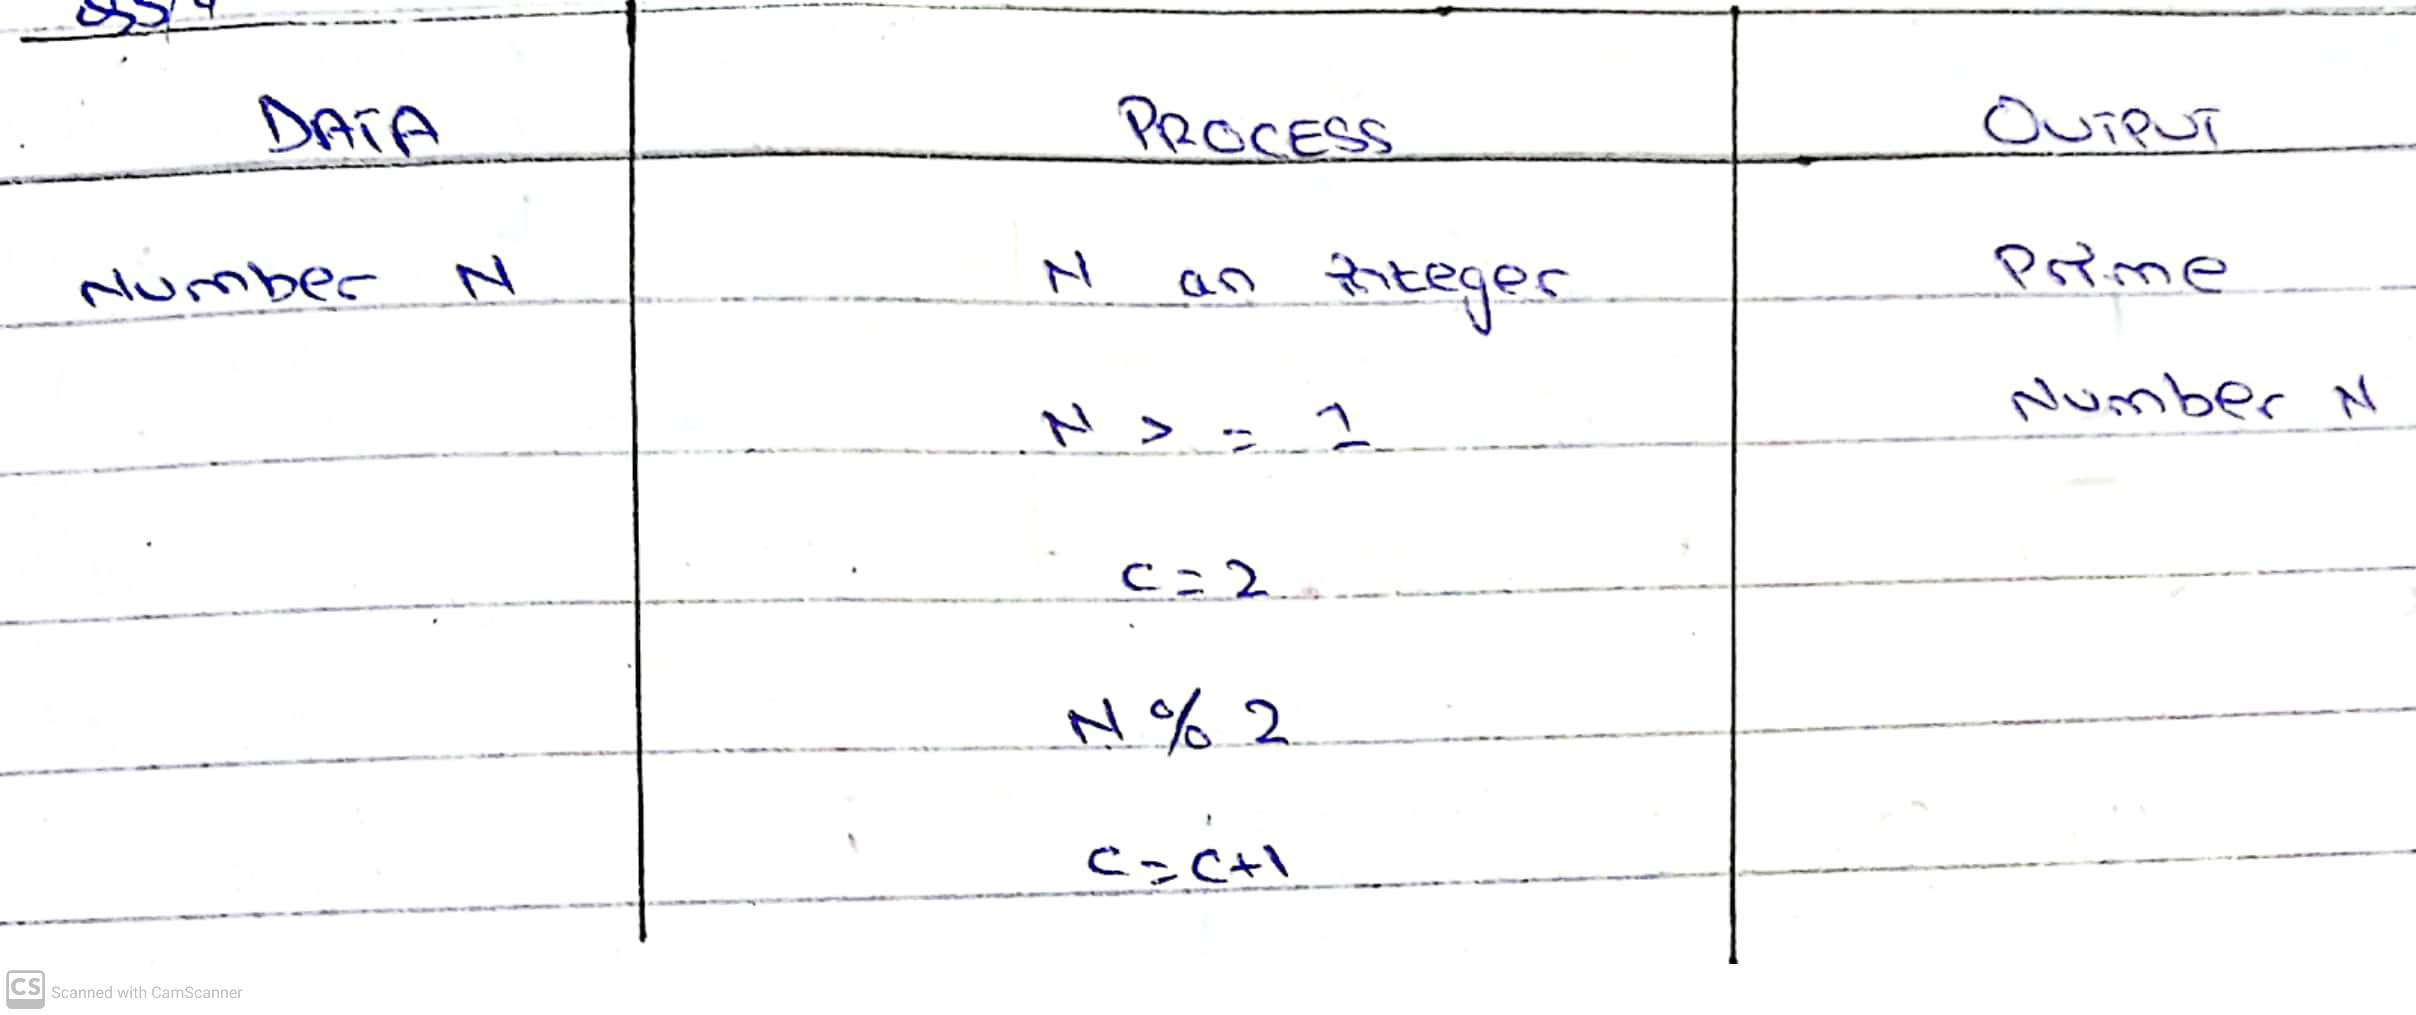 DATA PROCESS OUTPUT
Number N N an Integer Prime
N > = 1 Number N
C = 2
N % 2
C = C+1
CS Scanned with CamScanner